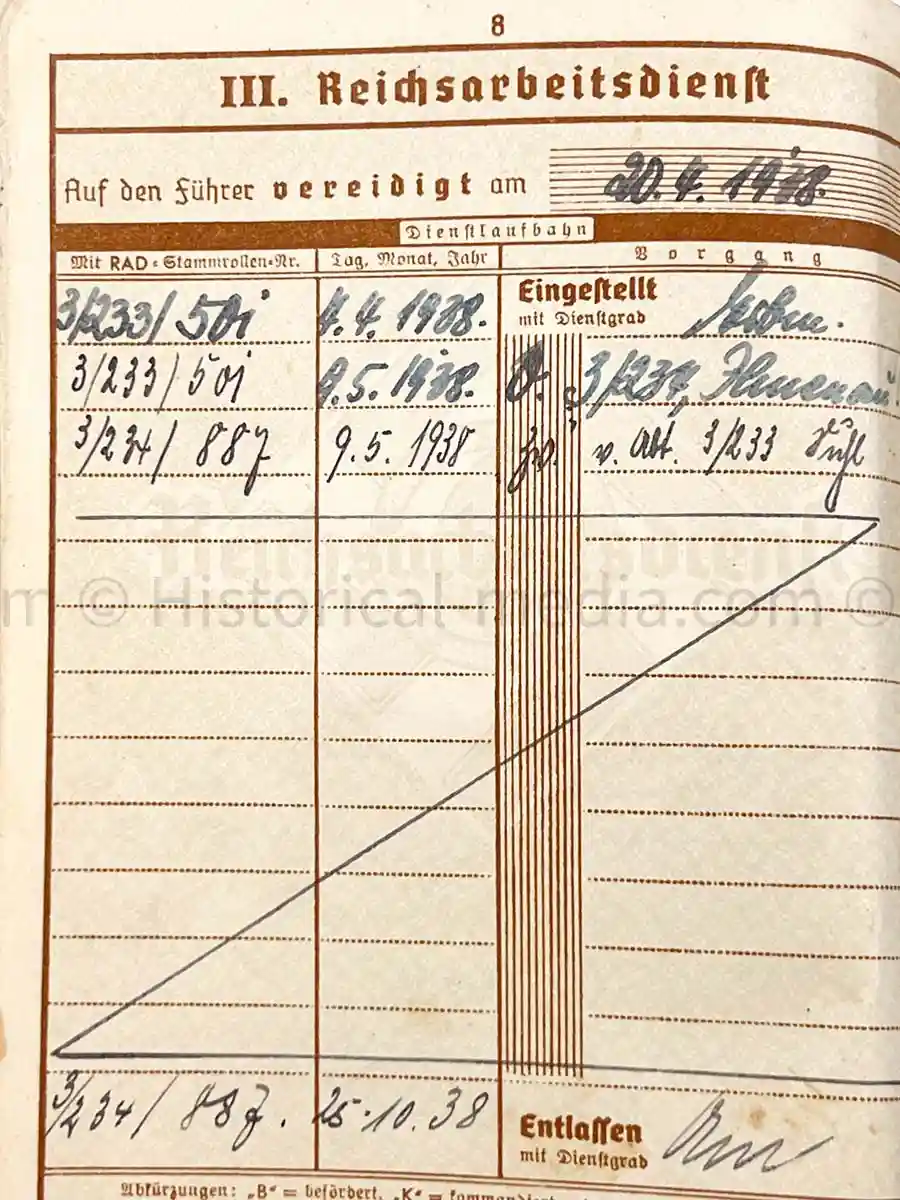 8
III. Reichsarbeitsdienst
Auf den Führer vereidigt am 20. 4. 1938.
Dienstlaufbahn
Mit RAD-Stammrollen-Nr. Tag, Monat, Jahr Vorgang
3/233/ 501 4. 4. 1938. Eingestellt
mit Dienstgrad
3/233/ 501 9. 5. 1938. 3/234, Ilmenau.
3/234/ 887 9. 5. 1938 v. Abt. 3/233 Suhl
m © Historical-media.com ©
3/234/ 887. 25.10.38 Entlassen
mit Dienstgrad
Abkürzungen: „B“ = befördert, „K“ =